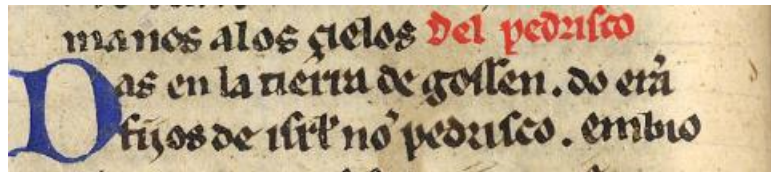 manos alos çielos del pedrisco
Das en la tierra de gossen. do erã
fijos de isrl no pedrisco. embio